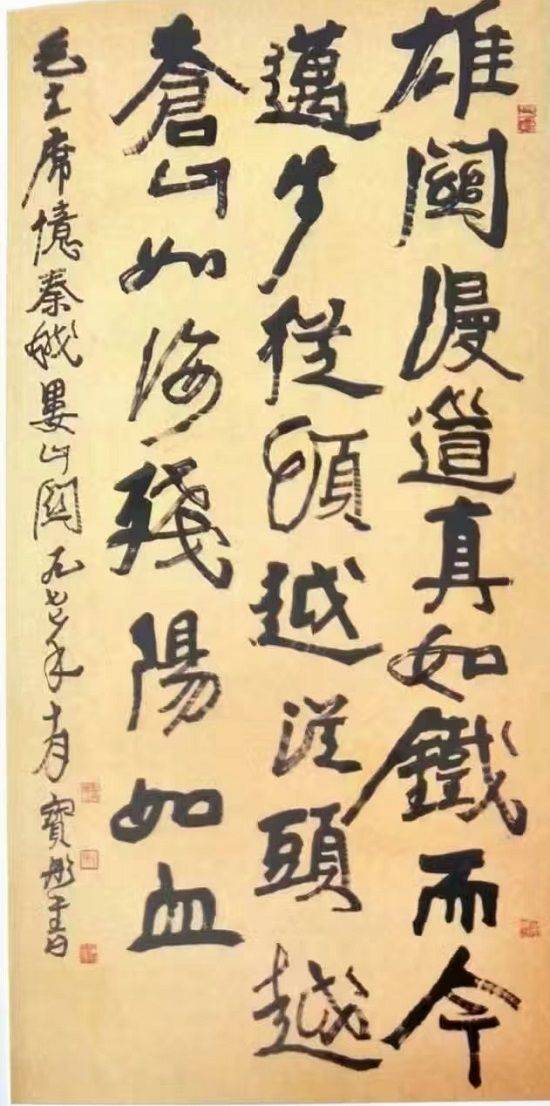 雄關漫道真如鐵而今
邁步從頭越從頭越
蒼山如海殘陽如血
毛主席憶秦娥婁山關九七年十月寶彤書